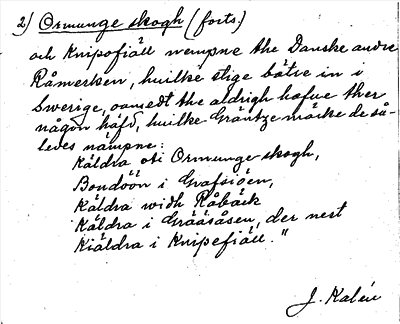 2) Ormunge skogh (forts.)
och Knipofiäll nempne the Danske andre
Råmerken, huilke stige bätre in i
Swerige, oansedt the aldrigh hafue ther
någon häfd, huilke Gräntze märcke de så-
ledes nämpne:
Käldra oti Ormunge skogh,
Bondöön i Grafsiöen,
Käldra widh Råbäck
Käldra i Grååsåsen, der nest
Kiäldra i Knipefiäll."
J. Kalén